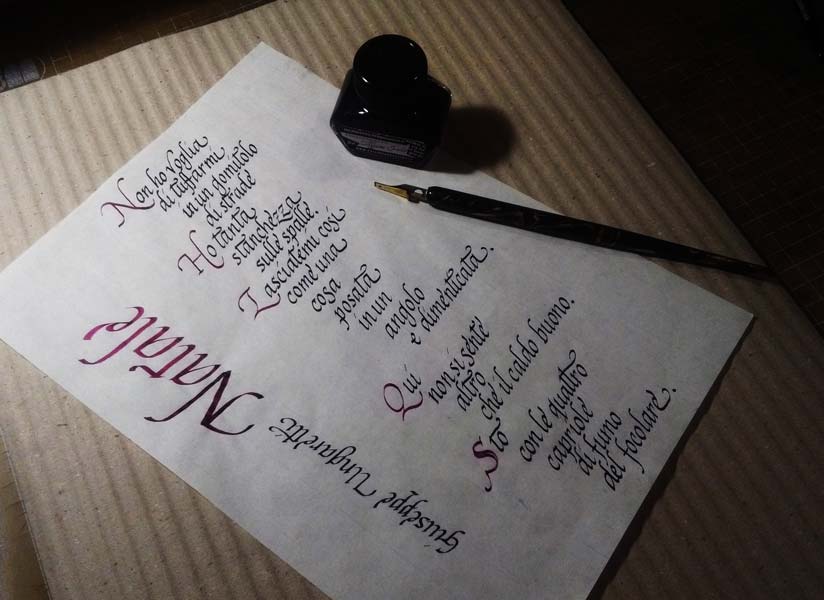 Natale
Giuseppe Ungaretti
Non ho voglia
di tuffarmi
in un gomitolo
di strade
Ho tanta
stanchezza
sulle spalle.
Lasciatemi così
come una
cosa
posata
in un
angolo
e dimenticata.
Qui
non si sente
altro
che il caldo buono.
Sto
con le quattro
capriole
di fumo
del focolare.